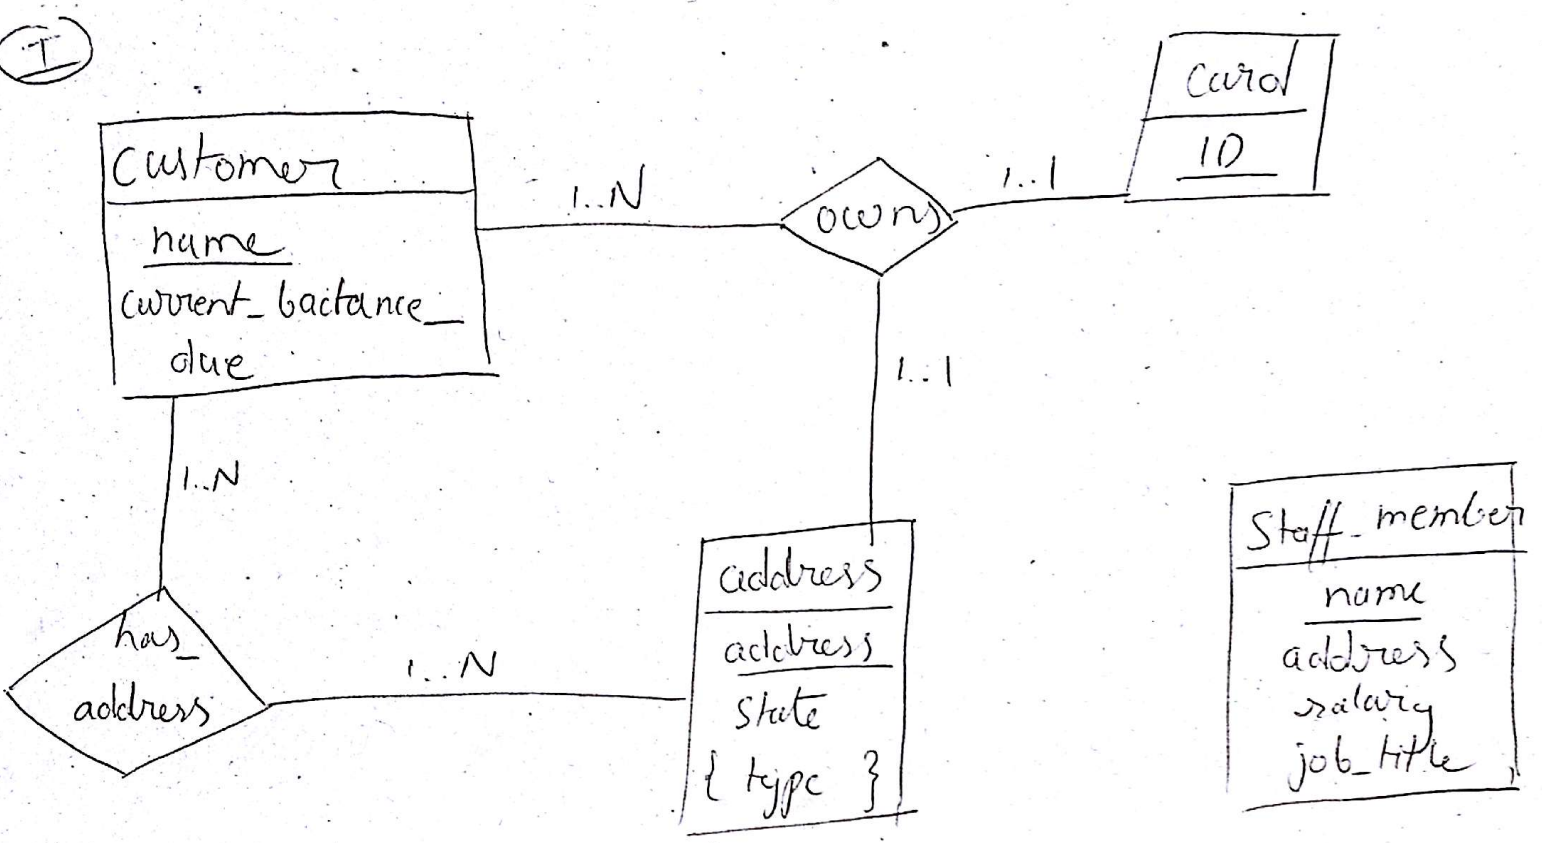 I
Customer
name
current_bactance_
due
1..N
owns
1..1
Card
ID
1..1
1..N
has_
address
1..N
address
address
state
{ type }
Staff_member
name
address
salary
job_title